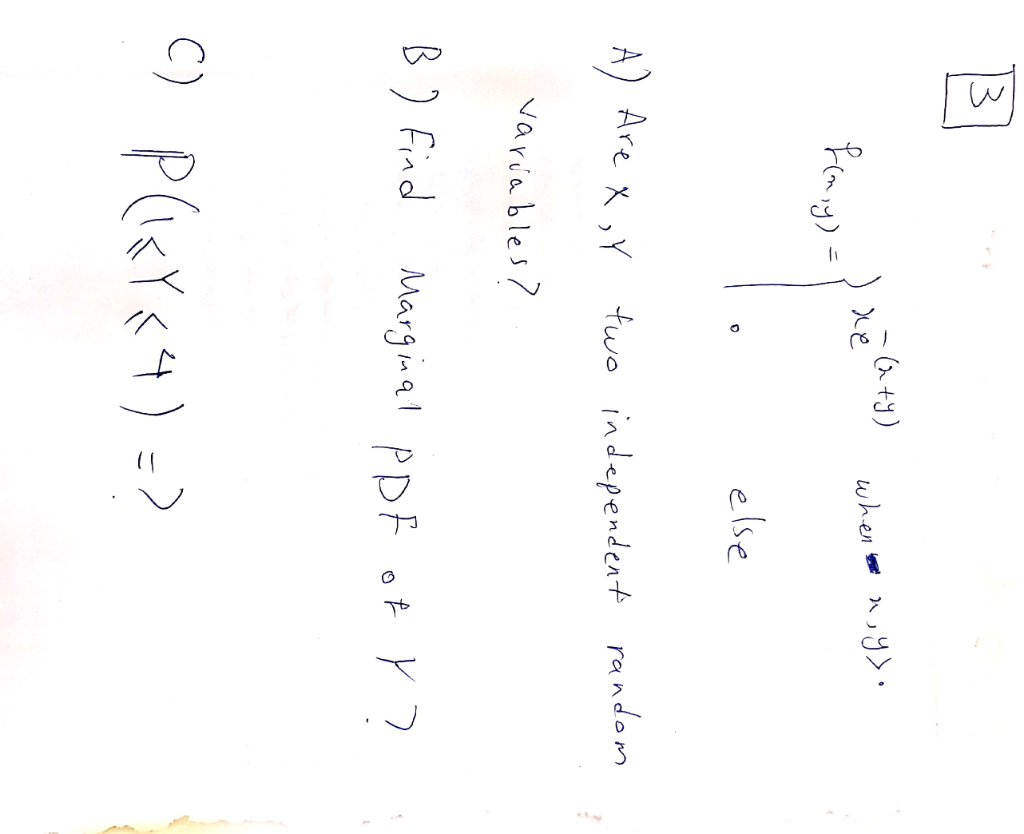 3
f(x,y) = { xe^-(x+y) when x,y>.
. else
A) Are X,Y two independent random
variables?
B) Find Marginal PDF of Y?
C) P(1≤Y≤4) = ?